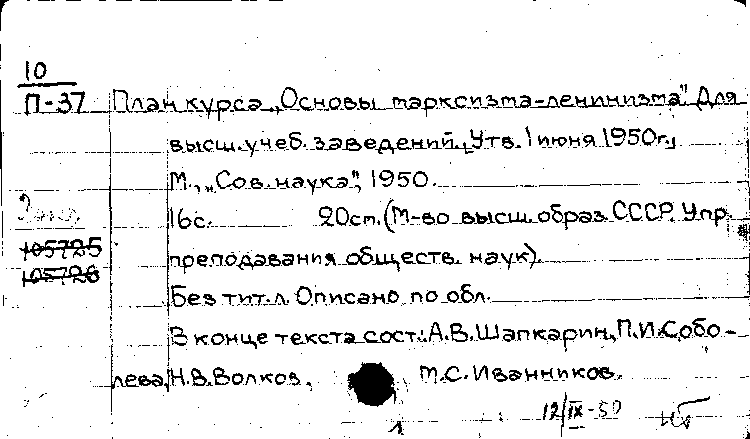 10
П-37 План курса „Основы марксизма-ленинизма" Для
высш. учеб. заведений. „Утв. 1 июня 1950г.„
М., „Сов. наука", 1950.
16с. 20см. (М-во высш. образ. СССР. Упр.
105725
преподавания обществ. наук).
105726
Без тит. л. Описано по обл.
В конце текста сост.: А.В. Шапкарин, П.И. Собо-
лева, Н.В. Волков, М.С. Иванников.
12/IX-50